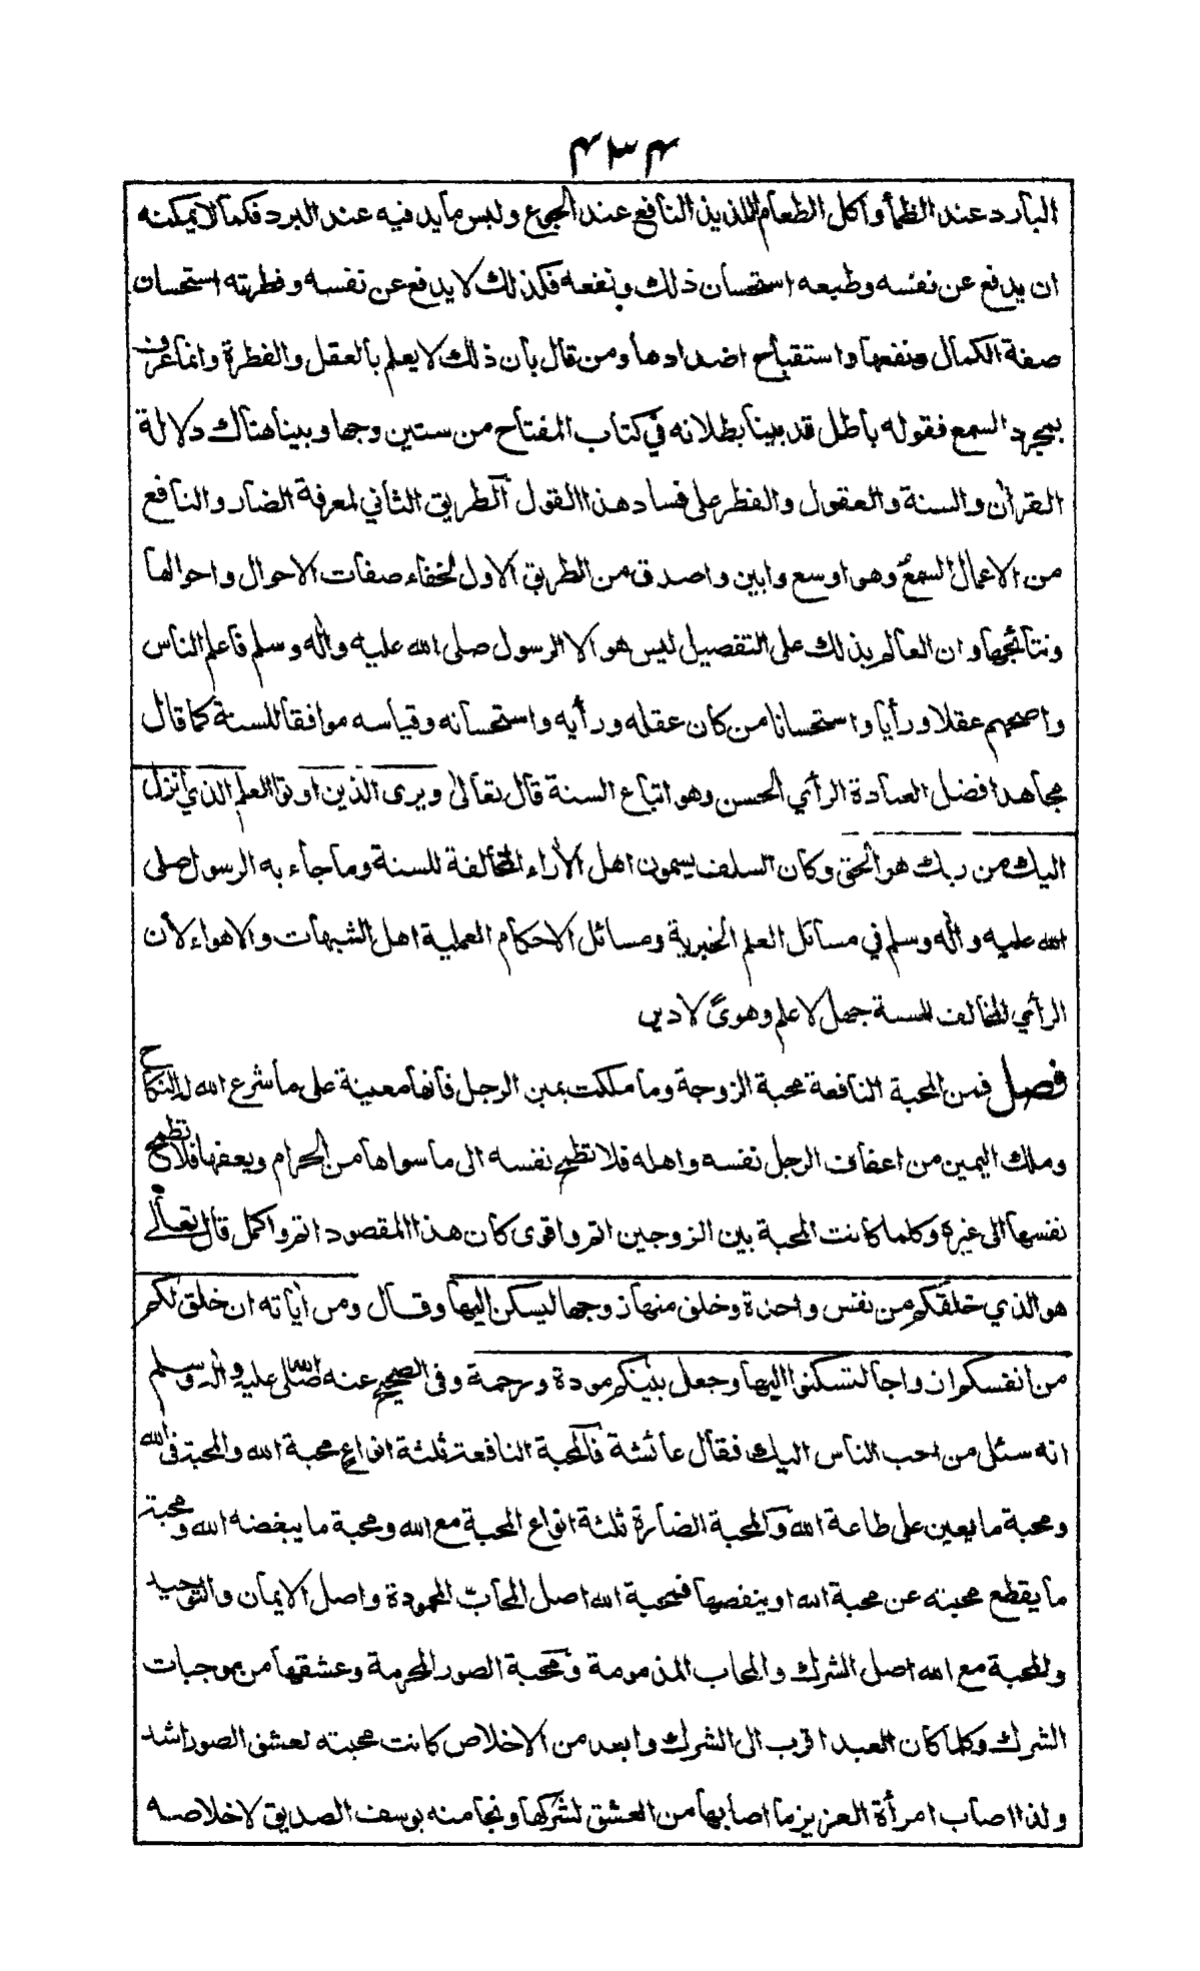 ۴۳۴
البارد عند الظمأ واكل الطعام اللذيذ النافع عند الجوع ولبس مايدفيه عند البرد فكما لا يمكنه
ان يدفع عن نفسه وطبعه استحسان ذلك ونفعه فكذلك لا يدفع عن نفسه وفطرته استحسان
صفة الكمال ونفعها واستقباح اضدادها ومن قال بان ذلك لا يعلم بالعقل والفطرة وانما عرف
بمجرد السمع فقوله باطل قد بينا بطلانه في كتاب المفتاح من ستين وجها وبينا هناك دلالة
القرآن والسنة والعقول والفطر على فساد هذا القول الطريق الثاني لمعرفة الضار والنافع
من الاعمال السمع وهو اوسع وابين واصدق من الطريق الاول لخفاء صفات الاحوال واحوالها
ونتائجها وان العالم بذلك على التفصيل ليس هو الا الرسول صلى الله عليه واله وسلم فاعلم الناس
واصحهم عقلا ورأيا واستحسانا من كان عقله ورأيه واستحسانه وقياسه موافقا للسنة كما قال
مجاهد افضل العبادة الرأي الحسن وهو اتباع السنة قال تعالى ويرى الذين اوتوا العلم الذي انزل
اليك من ربك هو الحق وكان السلف يسمون اهل الأراء المخالفة للسنة وما جاء به الرسول صلى
الله عليه واله وسلم في مسائل العلم الخبرية ومسائل الاحكام العملية اهل الشبهات والاهواء لان
الرأي المخالف للسنة جهل لا علم وهوىً لا دين
فصل فمن المحبة النافعة محبة الزوجة وما ملكت يمين الرجل فانها معينة على ما شرع الله له النكاح
وملك اليمين من اعفاف الرجل نفسه واهله فلا تطمح نفسه الى ما سواها من الحرام ويعفها فلا تطمح
نفسها الى غيره وكلما كانت المحبة بين الزوجين اتم واقوى كان هذا المقصود اتم واكمل قال تعالى
هو الذي خلقكم من نفس واحدة وخلق منها زوجها ليسكن اليها وقال ومن أياته ان خلق لكم
من انفسكم ازواجا لتسكنوا اليها وجعل بينكم مودة ورحمة وفى الصحيح عنه صلى الله عليه واله وسلم
انه سئل من احب الناس اليك فقال عائشة فالمحبة النافعة ثلثة انواع محبة الله والمحبة فى الله
ومحبة ما يعين على طاعة الله والمحبة الضارة ثلثة انواع المحبة مع الله ومحبة ما يبغضه الله ومحبة
ما يقطع محبته عن محبة الله او ينقصها فمحبة الله اصل المحابّ المحمودة واصل الايمان والتوحيد
والمحبة مع الله اصل الشرك والمحاب المذمومة ومحبة الصور المحرمة وعشقها من موجبات
الشرك وكلما كان العبد اقرب الى الشرك وابعد من الاخلاص كانت محبته لعشق الصور اشد
ولذا اصاب امرأة العزيز ما اصابها من العشق لشركها ونجا منه يوسف الصديق لاخلاصه